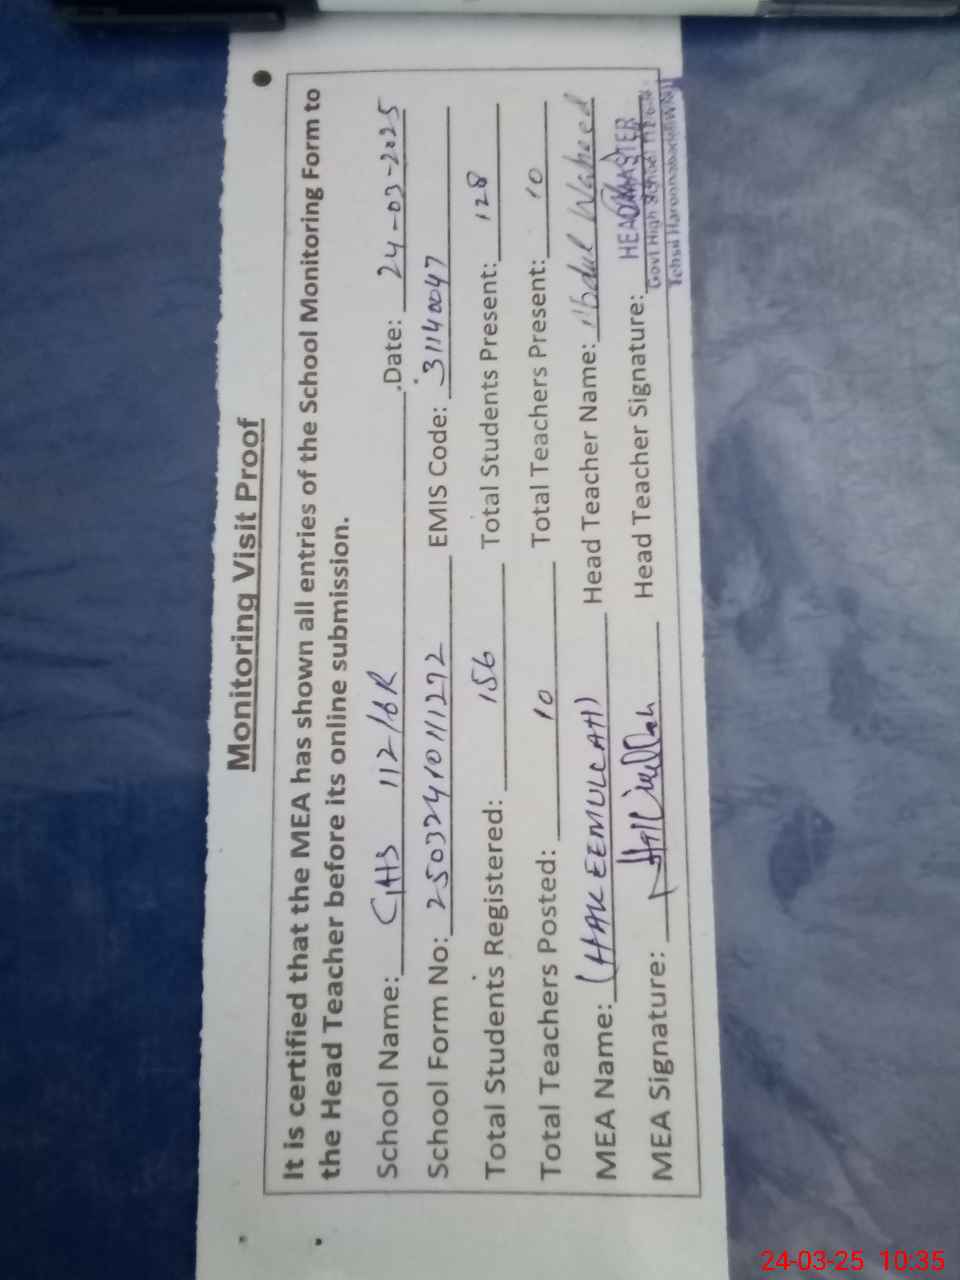 Monitoring Visit Proof
It is certified that the MEA has shown all entries of the School Monitoring Form to
the Head Teacher before its online submission.
School Name: GHS 112/6R Date: 24-03-2025
School Form No: EMIS Code: 31140047
Total Students Registered: 156 Total Students Present: 128
Total Teachers Posted: 10 Total Teachers Present: 10
MEA Name: (HAKEEMULLAH) Head Teacher Name: Abdul Waheed
MEA Signature: Head Teacher Signature:
HEADMASTER
Govt High School
Tehsil Haroonabad
24-03-25 10:35